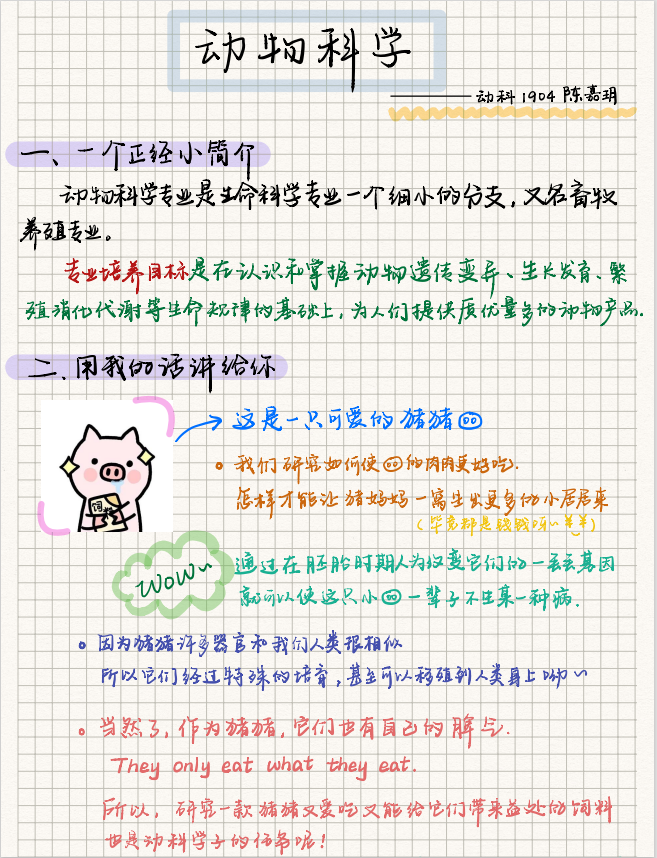 动物科学
——动科1904 陈嘉玥
一、一个正经小简介
动物科学专业是生命科学专业一个细小的分支，又名畜牧
养殖专业。
专业培养目标是在认识和掌握动物遗传变异、生长发育、繁
殖消化代谢等生命规律的基础上，为人们提供质优量多的动物产品.
二、用我的话讲给你
饲料
这是一只可爱的猪猪
我们研究如何使的肉肉更好吃.
怎样才能让猪妈妈一窝生出更多的小屁屁来
(毕竟都是钱钱呀~¥¥)
wow~
通过在胚胎时期人为改变它们的一丢丢基因
就可以使这只小一辈子不生某一种病.
因为猪猪许多器官和我们人类很相似
所以它们经过特殊的培育，甚至可以移殖到人类身上呦~
当然了，作为猪猪，它们也有自己的脾气.
They only eat what they eat.
所以，研究一款猪猪又爱吃又能给它们带来益处的饲料
也是动科学子的任务呢！